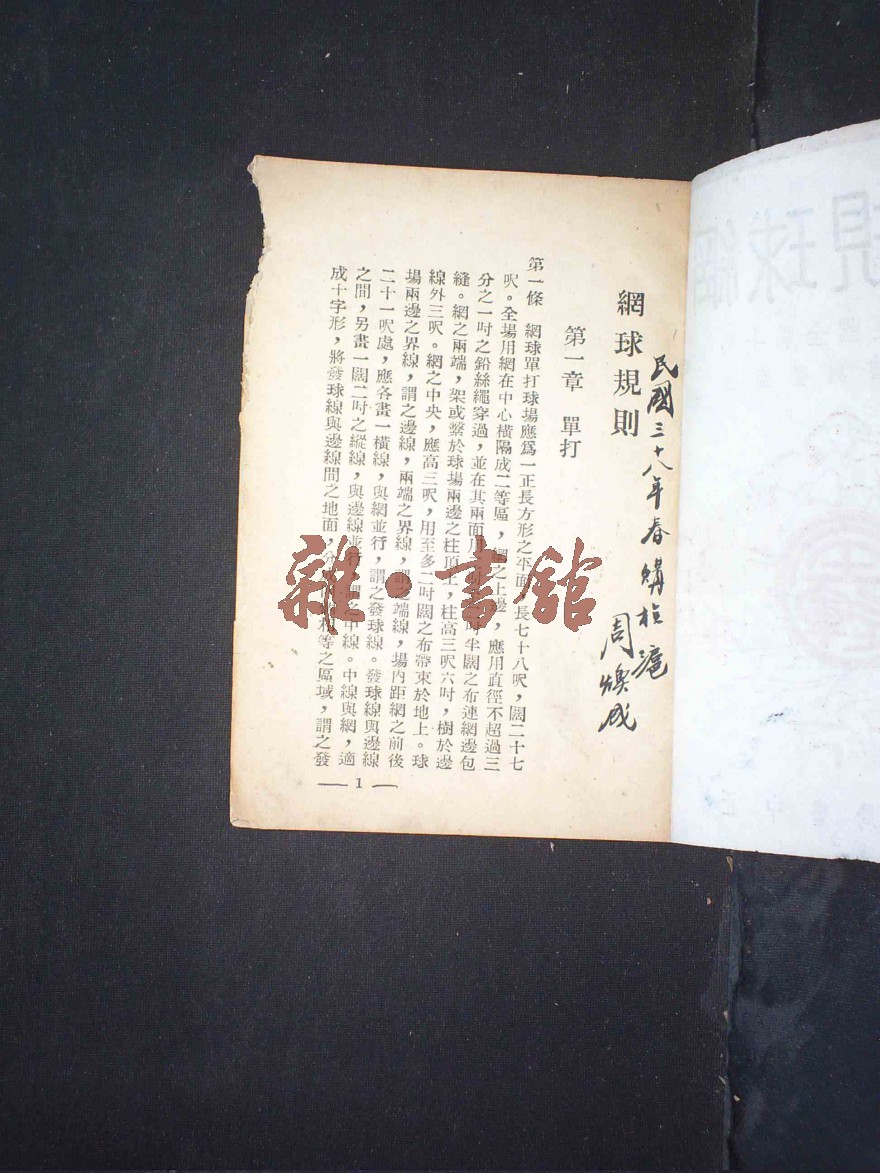 網球規則
民國三十八年春購於滬
周煥成
第一章 單打
第一條 網球單打球場應爲一正長方形之平面,長七十八呎,闊二十七
呎。全場用網在中心橫隔成二等區,網之上邊,應用直徑不超過三
分之一吋之鉛絲繩穿過,並在其兩面用 吋半闊之布連網邊包
縫。網之兩端,架或繫於球場兩邊之柱頂上,柱高三呎六吋,樹於邊
線外三呎。網之中央,應高三呎,用至多二吋闊之布帶束於地上。球
場兩邊之界線,謂之邊線,兩端之界線,謂之端線,場內距網之前後
二十一呎處,應各畫一橫線,與網並行,謂之發球線。發球線與邊線
之間,另畫一闊二吋之縱線,與邊線並行,謂之中線。中線與網,適
成十字形,將發球線與邊線間之地面,分成 相等之區域,謂之發
— 1 —
雜·書館
規球網